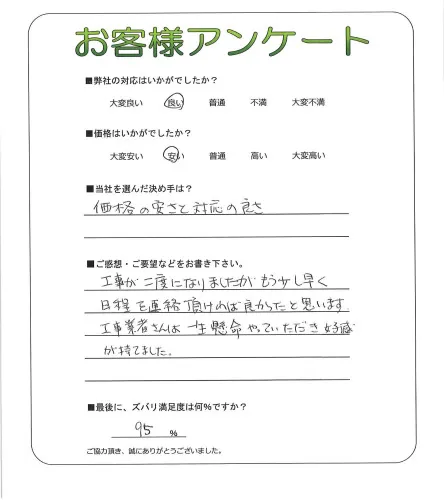 お客様アンケート
■弊社の対応はいかがでしたか？
大変良い　良い　普通　不満　大変不満
■価格はいかがでしたか？
大変安い　安い　普通　高い　大変高い
■当社を選んだ決め手は？
価格の安さと対応の良さ
■ご感想・ご要望などをお書き下さい。
工事が二度になりましたがもう少し早く
日程を連絡頂ければ良かったと思います
工事業者さんは一生懸命やっていただき好感
が持てました。
■最後に、ズバリ満足度は何％ですか？
95 ％
ご協力頂き、誠にありがとうございました。